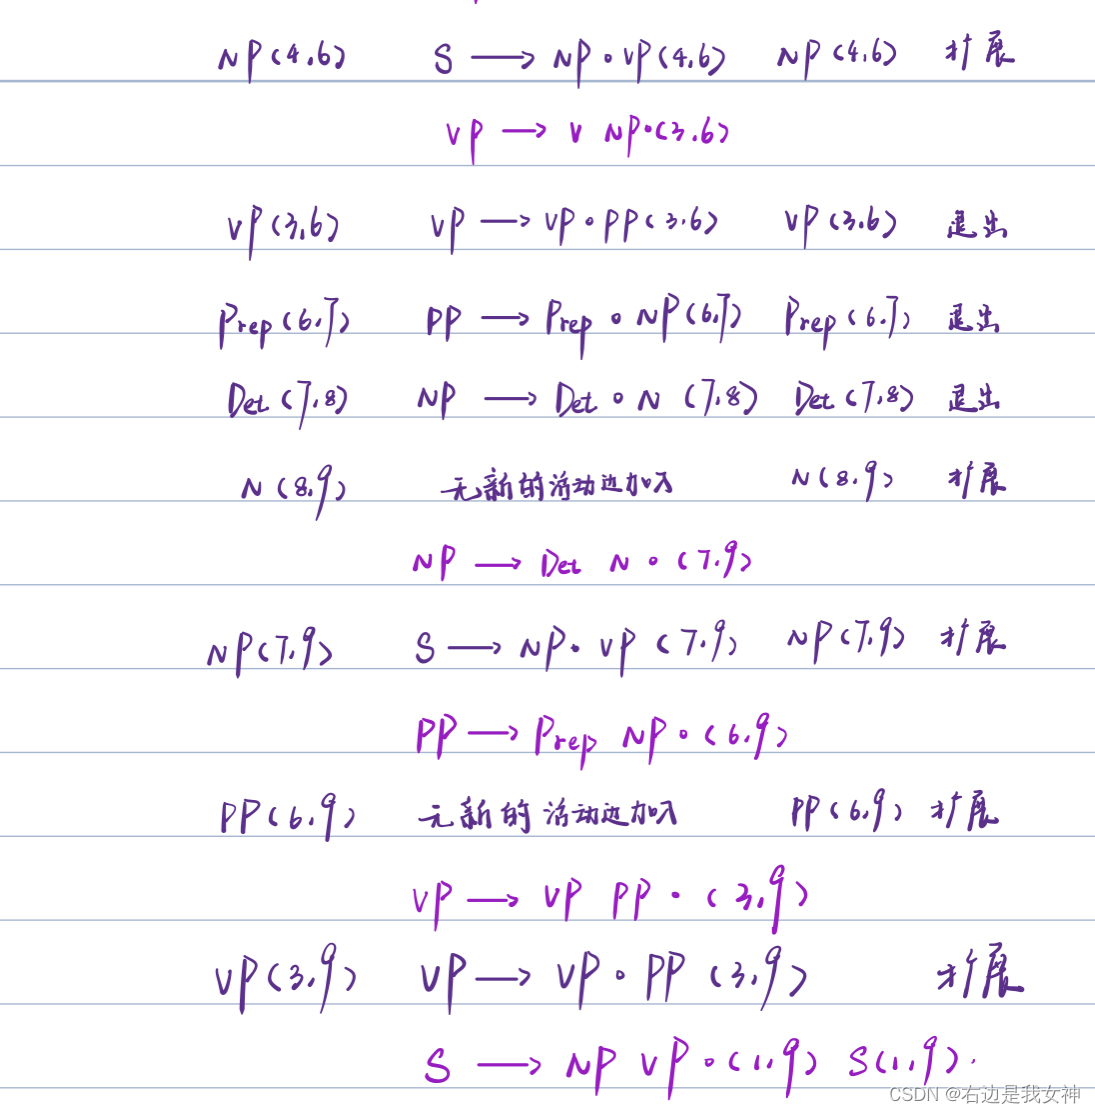 NP(4.6) S → NP∘VP(4.6) NP(4.6) 扩展
VP → V NP•(3.6)
VP(3.6) VP → VP∘PP(3.6) VP(3.6) 退出
Prep(6.7) PP → Prep∘NP(6.7) Prep(6.7) 退出
Det(7.8) NP → Det∘N(7.8) Det(7.8) 退出
N(8.9) 无新的活动边加入 N(8.9) 扩展
NP → Det N∘(7.9)
NP(7.9) S → NP•VP(7.9) NP(7.9) 扩展
PP → Prep NP∘(6.9)
PP(6.9) 无新的活动边加入 PP(6.9) 扩展
VP → VP PP•(3.9)
VP(3.9) VP → VP∘PP(3.9) 扩展
S → NP VP∘(1.9) S(1.9).
CSDN @右边是我女神